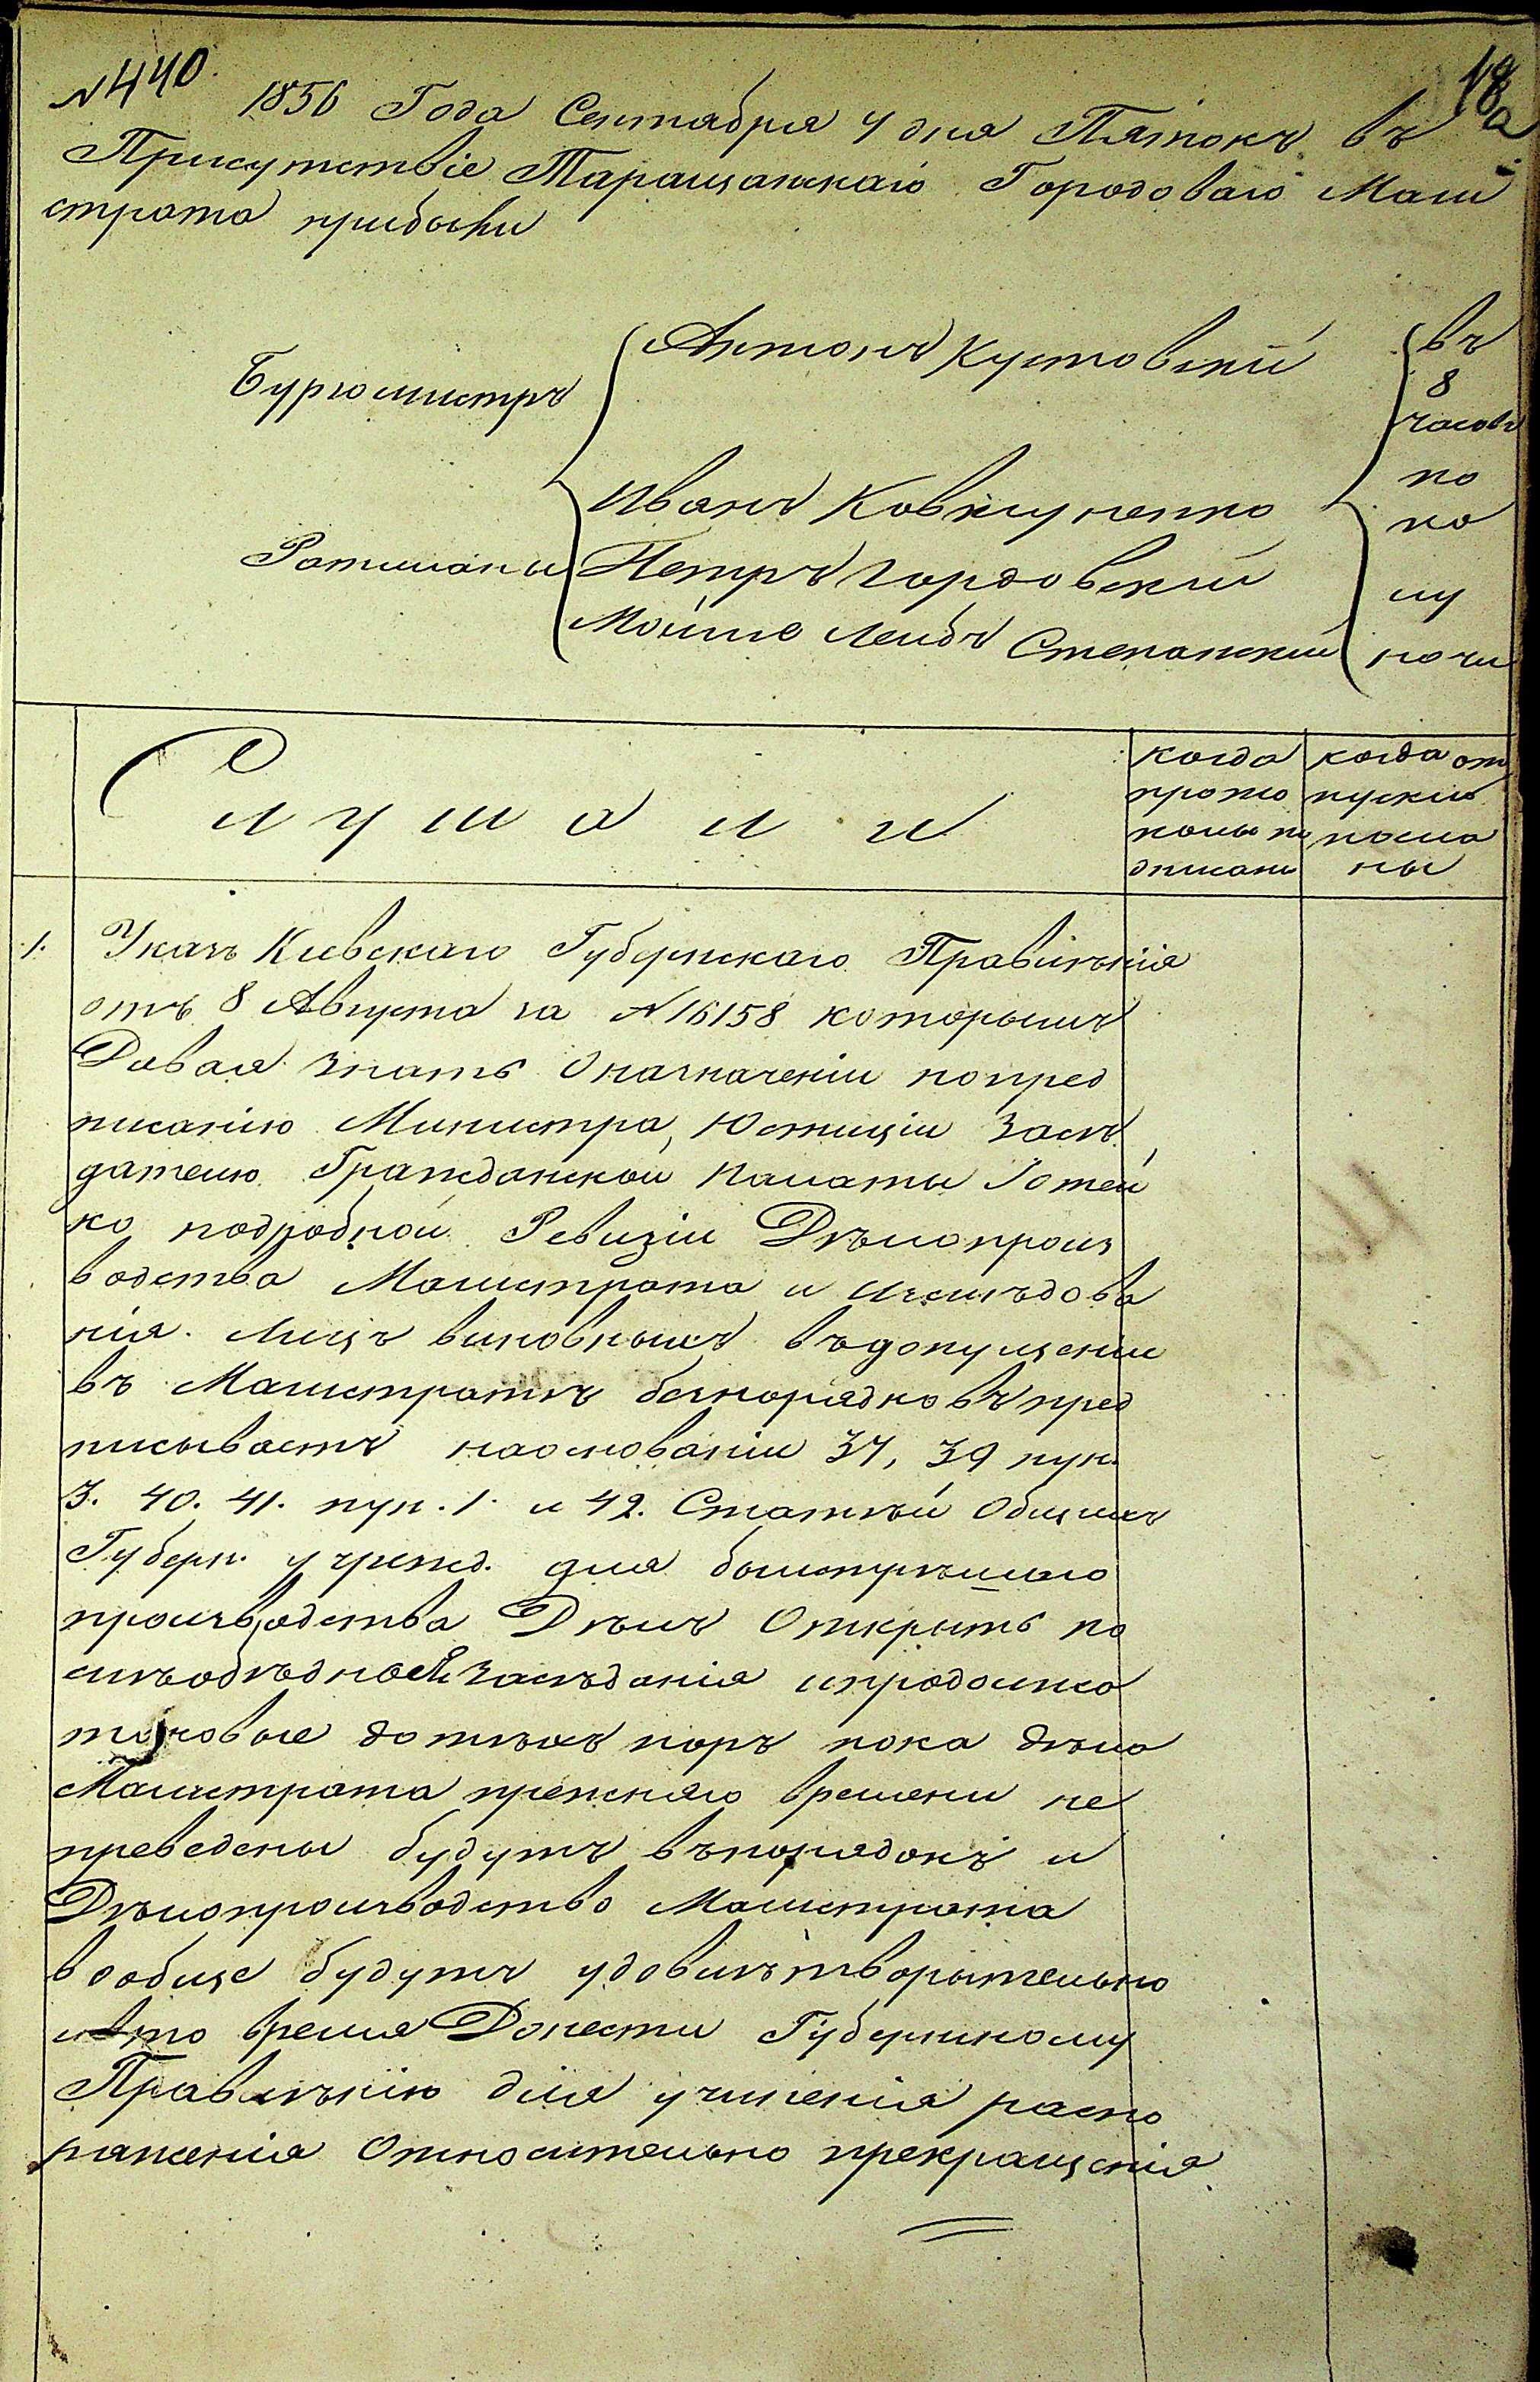 №440.
18
1856 Года Сентября 4 дня Пятокъ въ
Присутствіе Таращанскаго Городоваго Маги
страта прибыли
Бургомистръ
Антонъ Кустовскій
въ
8
часовъ
по
по
лу
ночи
Ратманы
Иванъ Ковтуненко
Петръ Гордовскій
Мойше Лейбъ Степанскій
Слушали
когда
прото
колы по
дписаны
когда от
пуски
посла
ны
1.
Указъ Кіевскаго Губернскаго Правлѣнія
отъ 8 Августа за №16158 которымъ
Давая знать о назначеніи по пред
писанію Министра Юстиціи Засѣ
дателю Гражданской Палаты
ко подробной Ревизіи Дѣлопроиз
водства Магистрата и изслѣдова
нія Лицъ виновныхъ въ допущеніи
въ Магистратѣ безпорядковъ пред
писываетъ на основаніи 37, 39 пун.
3. 40. 41. пун. 1. и 42. Статтьй Общихъ
Губерн. учрежд. для быстрѣшаго
производства Дѣлъ Открыть по
слѣобѣдное засѣданія и продолжа
таковые до тѣхъ поръ пока дѣла
Магистрата прежняго времени не
преведены будутъ въ порядокъ и
Дѣлопроизводство Магистрата
вообще будутъ удовилѣтворытельно
и въ то время Донести Губернскому
Правлѣнію для учиненія распо
раженія Относительно прекращенія